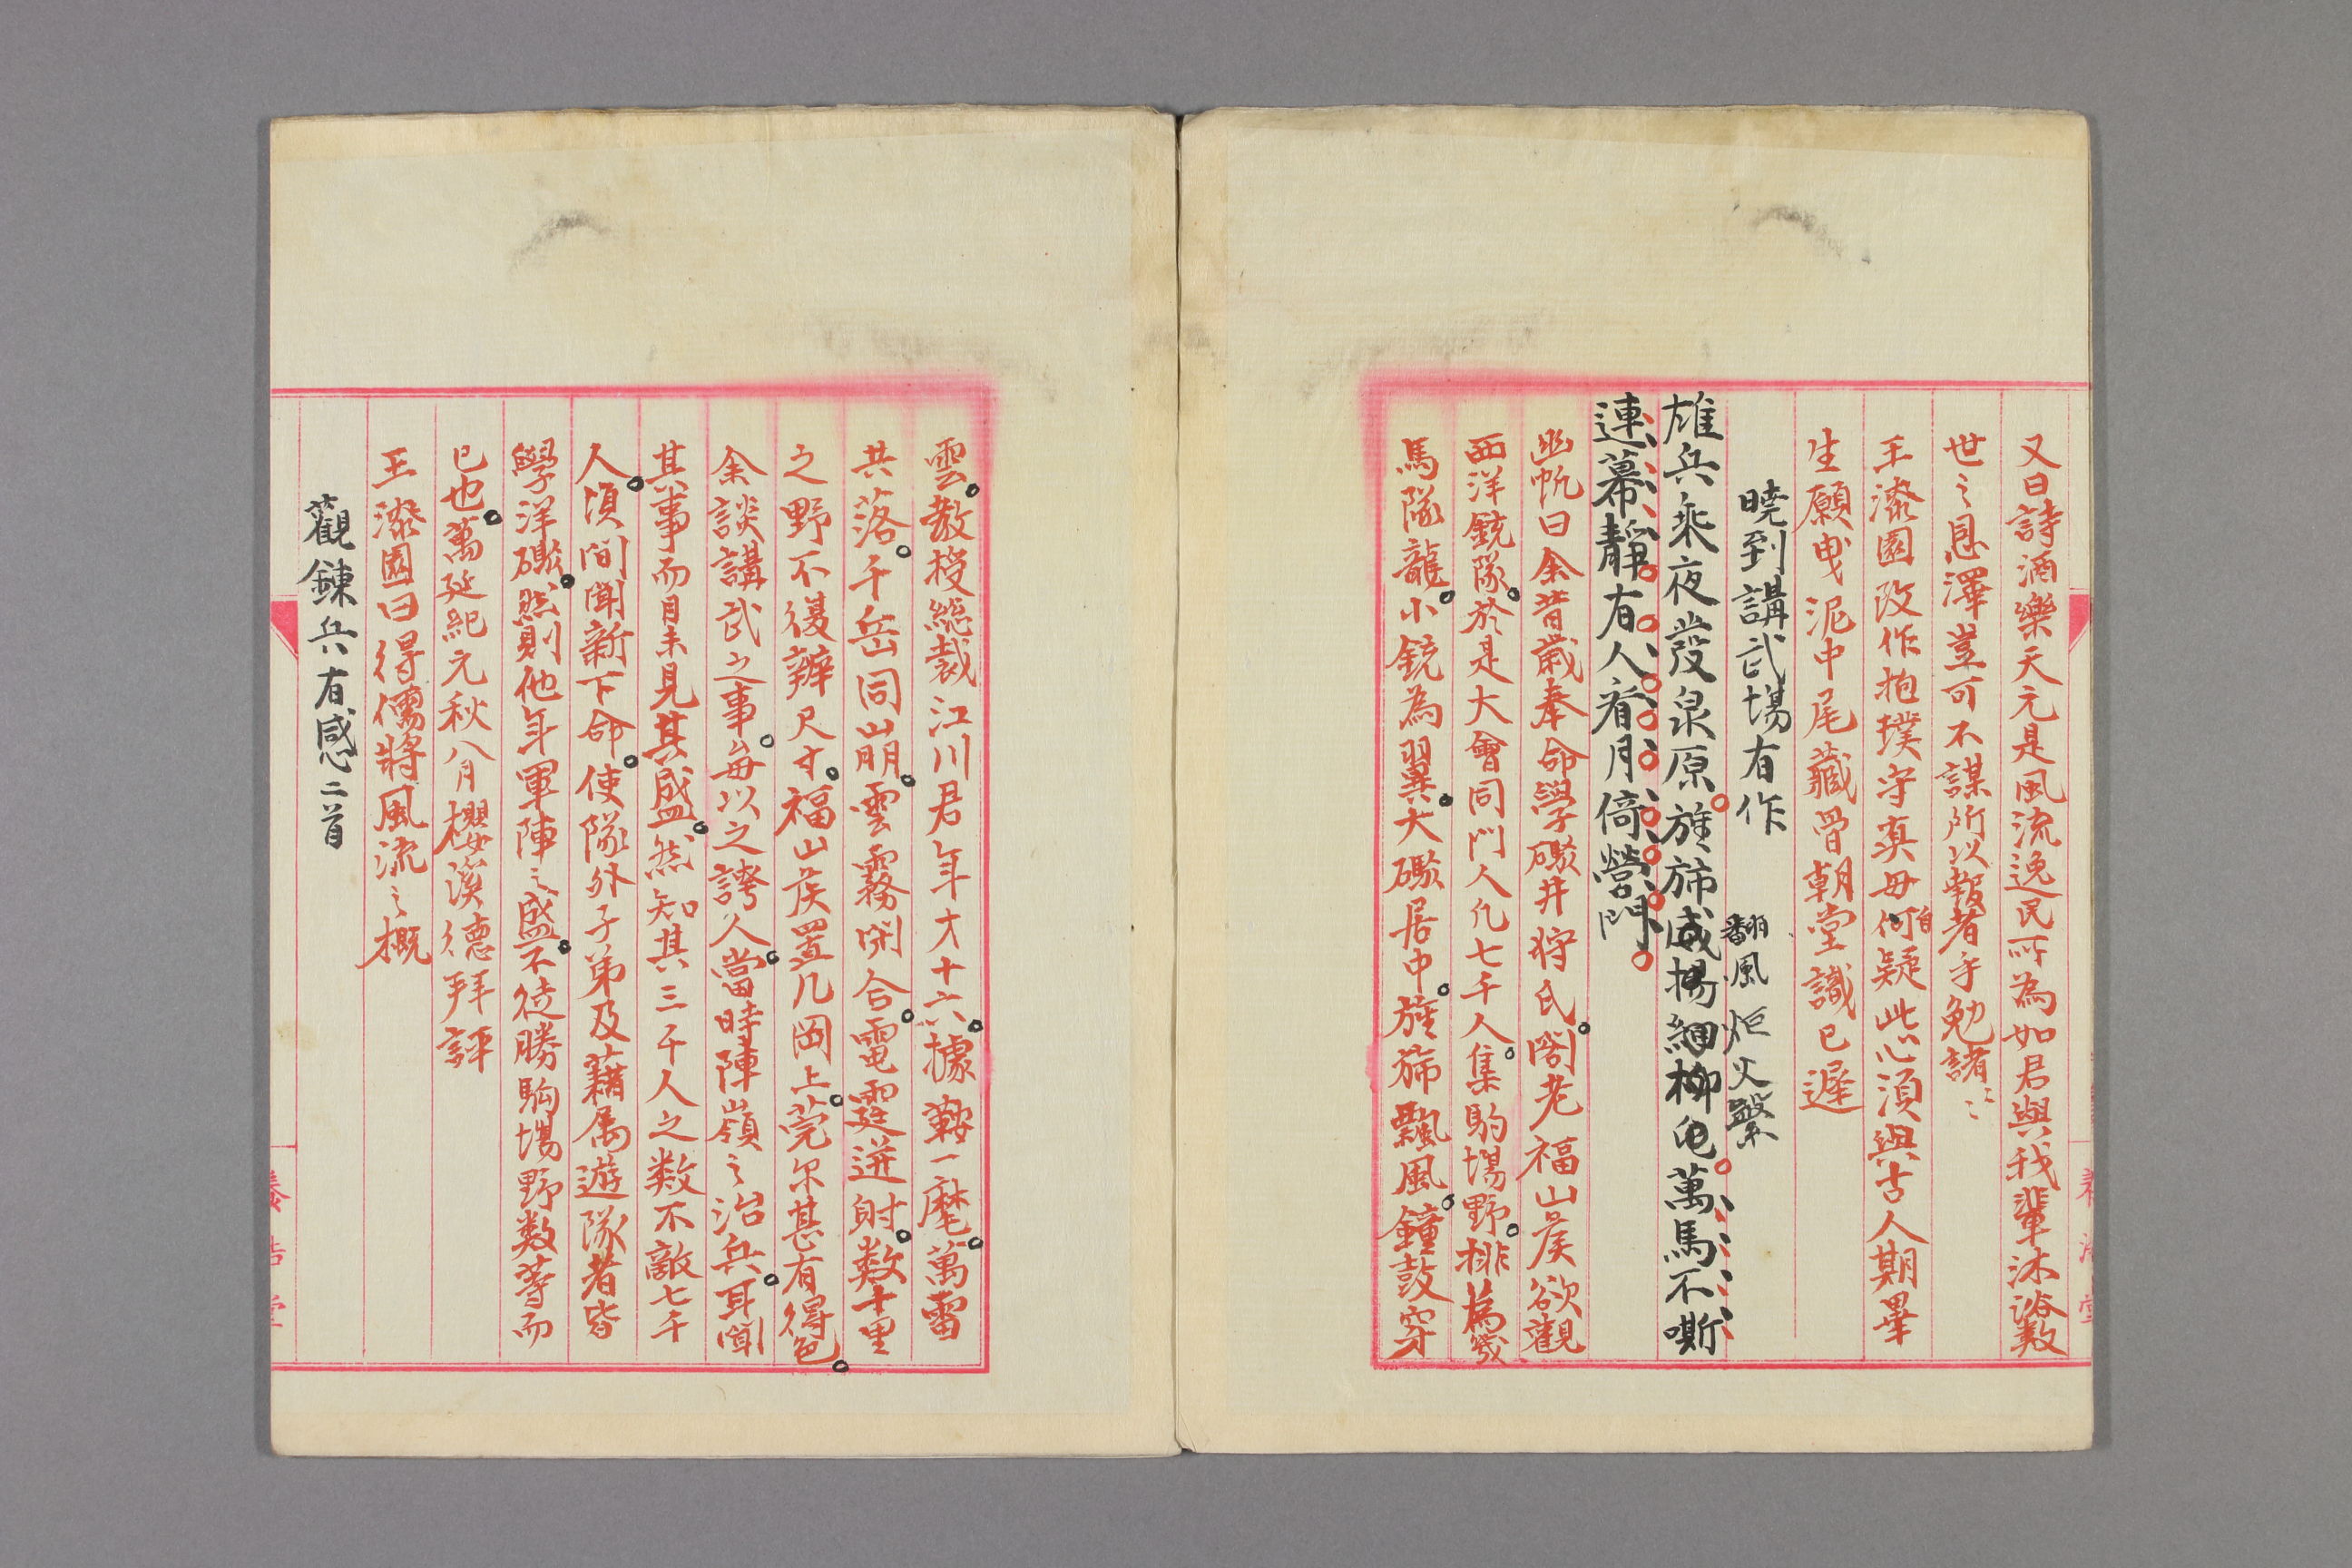 又曰詩酒樂天元是風流逸民所為如君與我輩沐浴数
世之恩澤豈可不謀所以報者乎勉諸〻〻
王漆園改作抱撲守真毋自何疑此心須與古人期畢
生願曳泥中尾藏骨朝堂識已遲
曉到講武場有作
翻風 炬火繄
雄兵乘夜發泉原旌斾威揚細柳屯萬馬不嘶
連幕靜有人看月倚營門
幽帆曰余昔歲奉命學礮井狩氏閣老福山侯欲觀
西洋銃隊於是大會同門人凡七千人集駒場野排為幾
馬隊龍小銃為翼大礮居中旌斾飄風鐘鼓穿
雲教授総裁江川君年才十六據鞍一麾萬雷
共落千岳同崩雲霧開合電霆迸射数十里
之野不復辨尺寸福山侯置几岡上莞尔甚有得色
余談講武之事每以之誇人當時陣嶺之治兵耳聞
其事而目未見其盛然知其三千人之数不敵七千
人頃間聞新下命使隊外子弟及藉属遊隊者皆
學洋礮然則他年軍陣之盛不徒勝駒場野数等而
已也萬延紀元秋八月櫻溪德拜評
王漆園曰得儒將風流之概
觀鍊兵有感二首